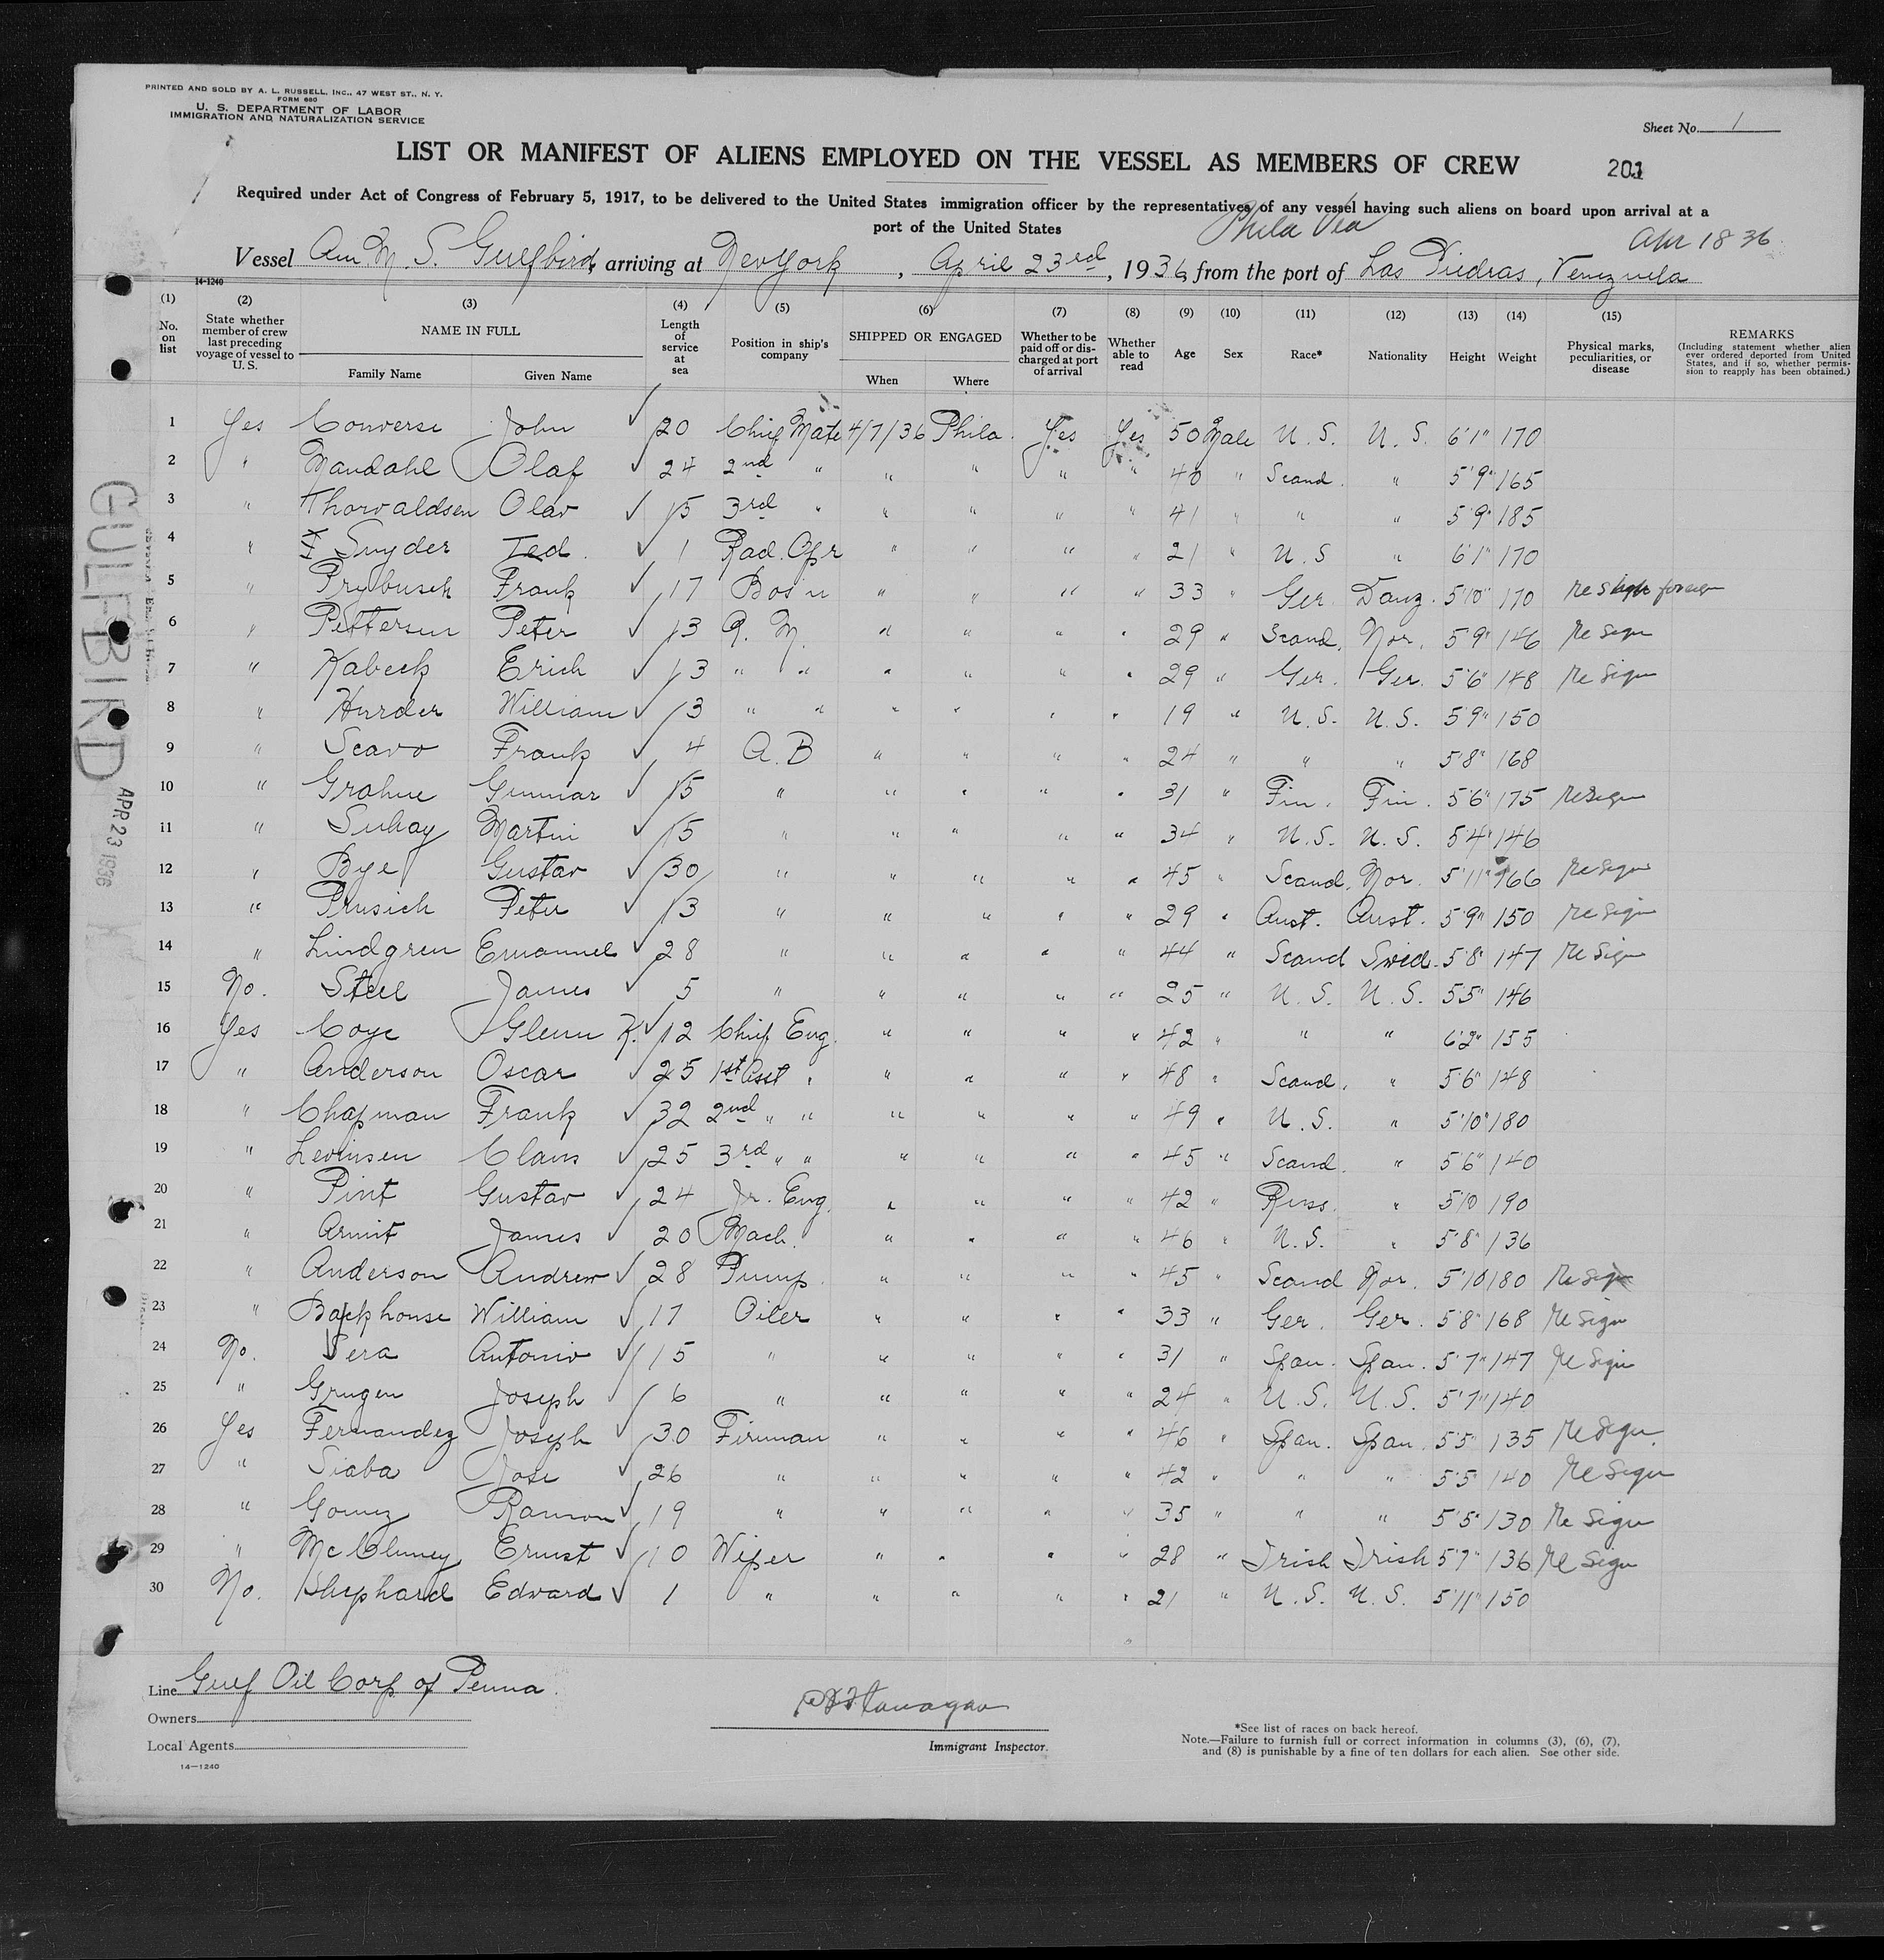 PRINTED AND SOLD BY A. L. RUSSELL, INC., 47 WEST ST., N. Y.
FORM 680
U. S. DEPARTMENT OF LABOR
IMMIGRATION AND NATURALIZATION SERVICE
Sheet No. 1
LIST OR MANIFEST OF ALIENS EMPLOYED ON THE VESSEL AS MEMBERS OF CREW
201
Required under Act of Congress of February 5, 1917, to be delivered to the United States immigration officer by the representatives of any vessel having such aliens on board upon arrival at a
port of the United States
Phila Via
Apr 18 36
Vessel Am M. S. Gulfbird, arriving at New York, April 23rd, 1936, from the port of Las Piedras, Venezuela
14-1240
(1) No. on list
(2) State whether member of crew last preceding voyage of vessel to U. S.
(3) NAME IN FULL Family Name Given Name
(4) Length of service at sea
(5) Position in ship's company
(6) SHIPPED OR ENGAGED When Where
(7) Whether to be paid off or discharged at port of arrival
(8) Whether able to read
(9) Age
(10) Sex
(11) Race*
(12) Nationality
(13) Height
(14) Weight
(15) Physical marks, peculiarities, or disease
REMARKS (Including statement whether alien ever ordered deported from United States, and if so, whether permission to reapply has been obtained.)
1 Yes Converse John √ 20 Chief Mate 4/7/36 Phila. Yes Yes 50 Male U. S. U. S. 6'1" 170
2 " Mandahl Olaf √ 24 2nd " " " " " 40 " Scand. " 5'9" 165
3 " Thorvaldsen Olav √ 15 3rd " " " " " 41 " " " 5'9" 185
4 " Snyder Ted √ 1 Rad. Opr " " " " 21 " U. S " 6'1" 170
5 " Prybusch Frank √ 17 Bos'n " " " " 33 " Ger. Danz. 5'10" 170
6 " Pettersen Peter √ 13 Q. M. " " " " 29 " Scand. Nor. 5'9" 146 Re Sign
7 " Kabeck Erich √ 13 " " " " " " 29 " Ger. Ger. 5'6" 148 Re Sign
8 " Hurder William √ 3 " " " " " " 19 " U. S. U. S. 5'9" 150
9 " Scavo Frank √ 4 A. B " " " " 24 " " " 5'8" 168
10 " Grahne Gunnar √ 15 " " " " " 31 " Fin. Fin. 5'6" 175 Re Sign
11 " Suhay Martin √ 15 " " " " " 34 " U. S. U. S. 5'4" 146
12 " Bye Gustav √ 30 " " " " " 45 " Scand. Nor. 5'11" 166 Re Sign
13 " Prusich Peter √ 13 " " " " " 29 " Aust. Aust. 5'9" 150 Re Sign
14 " Lindgren Emannel √ 28 " " " " " 44 " Scand Swed. 5'8" 147 Re Sign
15 No. Steel James √ 5 " " " " " 25 " U. S. U. S. 5'5" 146
16 Yes Coye Glenn K. √ 12 Chief Eng. " " " " 42 " " " 6'2" 155
17 " Anderson Oscar √ 25 1st Asst " " " " " 48 " Scand. " 5'6" 148
18 " Chapman Frank √ 32 2nd " " " " " " 49 " U. S. " 5'10" 180
19 " Levinsen Claus √ 25 3rd " " " " " " 45 " Scand. " 5'6" 140
20 " Pint Gustav √ 24 Jr. Eng. " " " " 42 " Russ. " 5'10 190
21 " Armit James √ 20 Mach. " " " " 46 " U. S. " 5'8" 136
22 " Anderson Andrew √ 28 Pump. " " " " 45 " Scand Nor. 5'10 180 Re Sign
23 " Backhouse William √ 17 Oiler " " " " 33 " Ger. Ger. 5'8" 168 Re Sign
24 No. Vera Antonio √ 15 " " " " " 31 " Span. Span. 5'7" 147 Re Sign
25 " Grugen Joseph √ 6 " " " " " 24 " U. S. U. S. 5'7" 140
26 Yes Fernandez Joseph √ 30 Fireman " " " " 46 " Span. Span. 5'5" 135 Re Sign.
27 " Siaba Jose √ 26 " " " " " 42 " " " 5'5" 140 Re Sign
28 " Gomez Ramon √ 19 " " " " " 35 " " " 5'5" 130 Re Sign
29 " McCluney Ernest √ 10 Wiper " " " " 28 " Irish Irish 5'7" 136 Re Sign
30 No. Shephard Edward √ 1 " " " " " 21 " U. S. U. S. 5'11" 150
GULFBIRD
APR 23 1936
Line Gulf Oil Corp of Penna.
Owners
Local Agents
14—1240
Immigrant Inspector.
*See list of races on back hereof.
Note.—Failure to furnish full or correct information in columns (3), (6), (7), and (8) is punishable by a fine of ten dollars for each alien. See other side.